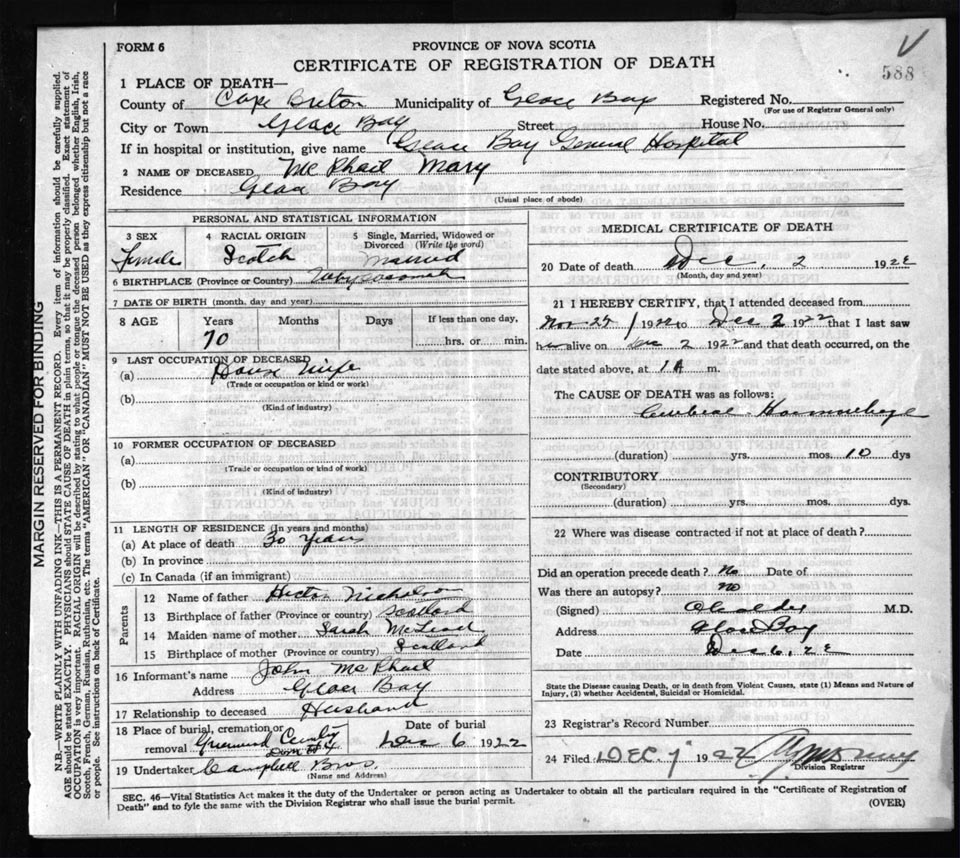 FORM 6
PROVINCE OF NOVA SCOTIA
CERTIFICATE OF REGISTRATION OF DEATH
588
1 PLACE OF DEATH—
County of Cape Breton Municipality of Glace Bay Registered No.
(For use of Registrar General only)
City or Town Glace Bay Street House No.
If in hospital or institution, give name Glace Bay General Hospital
2 NAME OF DECEASED McPhail Mary
Residence Glace Bay
(Usual place of abode)
PERSONAL AND STATISTICAL INFORMATION
3 SEX 4 RACIAL ORIGIN 5 Single, Married, Widowed or Divorced (Write the word)
Female Scotch Married
6 BIRTHPLACE (Province or Country)
7 DATE OF BIRTH (month, day and year)
8 AGE Years Months Days If less than one day,
70 hrs. or min.
9 LAST OCCUPATION OF DECEASED
(a) House Wife
(Trade or occupation or kind or work)
(b)
(Kind of industry)
10 FORMER OCCUPATION OF DECEASED
(a)
(Trade or occupation or kind or work)
(b)
(Kind of industry)
11 LENGTH OF RESIDENCE (In years and months)
(a) At place of death 30 years
(b) In province
(c) In Canada (if an immigrant)
Parents
12 Name of father Hector Nicholson
13 Birthplace of father (Province or country) Scotland
14 Maiden name of mother Sarah McLeod
15 Birthplace of mother (Province or country) Scotland
16 Informant's name John McPhail
Address Glace Bay
17 Relationship to deceased Husband
18 Place of burial, cremation, or removal Greenwood Date of burial Dec 6 1922
19 Undertaker Campbell Bros.
(Name and Address)
MEDICAL CERTIFICATE OF DEATH
20 Date of death Dec. 2 1922
(Month, day and year)
21 I HEREBY CERTIFY, that I attended deceased from
Nov 1922 to Dec 2 1922 that I last saw
her alive on Dec 2 1922 and that death occurred, on the
date stated above, at 1 A m.
The CAUSE OF DEATH was as follows:
Cerebral Haemorrhage
(duration) yrs. mos. 10 dys
CONTRIBUTORY
(Secondary)
(duration) yrs. mos. dys.
22 Where was disease contracted if not at place of death?
Did an operation precede death? No Date of
Was there an autopsy? No
(Signed) M.D.
Address Glace Bay
Date Dec 6, 22
State the Disease causing Death, or in death from Violent Causes, state (1) Means and Nature of
Injury, (2) whether Accidental, Suicidal or Homicidal.
23 Registrar's Record Number
24 Filed DEC 7 1922
Division Registrar
SEC. 46—Vital Statistics Act makes it the duty of the Undertaker or person acting as Undertaker to obtain all the particulars required in the "Certificate of Registration of
Death" and to fyle the same with the Division Registrar who shall issue the burial permit.
(OVER)
MARGIN RESERVED FOR BINDING
N.B.—WRITE PLAINLY WITH UNFADING INK—THIS IS A PERMANENT RECORD. Every item of information should be carefully supplied.
AGE should be stated EXACTLY. PHYSICIANS should STATE CAUSE OF DEATH in plain terms, so that it may be properly classified. Exact statement of
OCCUPATION is very important. RACIAL ORIGIN will be described by stating to what people or tongue the deceased person belonged whether English, Irish,
Scotch, French, German, Russian, Ruthenian, etc. The terms "AMERICAN" OR "CANADIAN" MUST NOT BE USED as they express citizenship but not a race
or people. See instructions on back of Certificate.